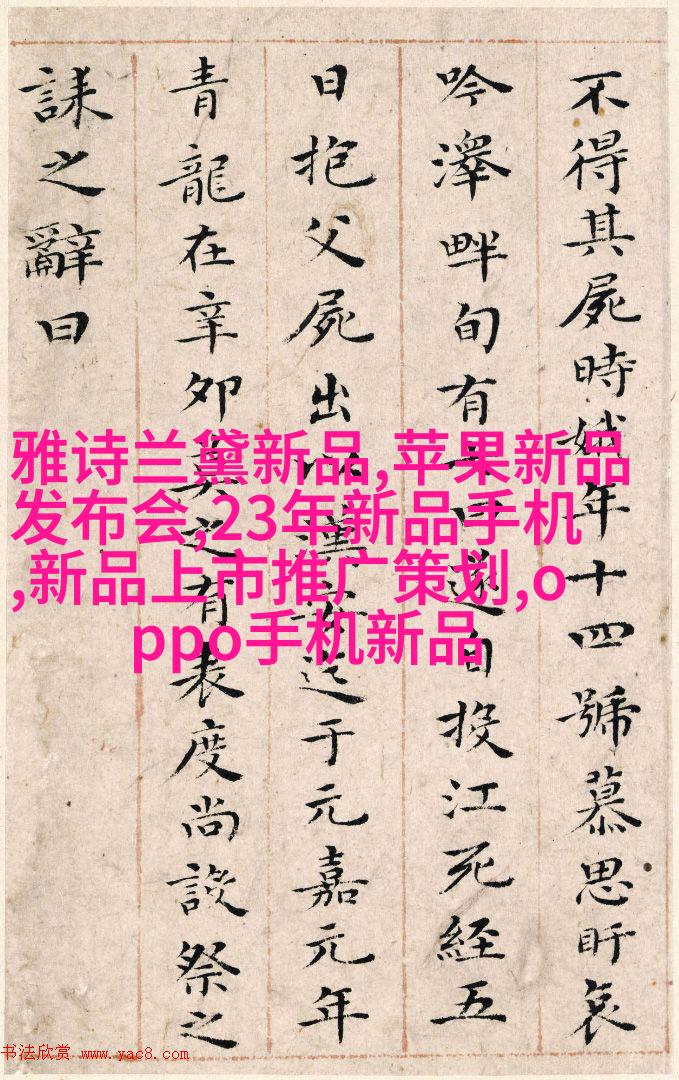 不得其屍時娥年十四號慕思盱哀
吟澤畔旬有遂自投江死經五
日抱父屍出以漢安迄于元嘉元年
青龍在辛卯莫之有表度尚設祭之
誄之辭曰
雅诗兰黛新品,苹果新品
发布会,23年新品手机
,新品上市推广策划,o
ppo手机新品
书法欣赏 www.yac8.com